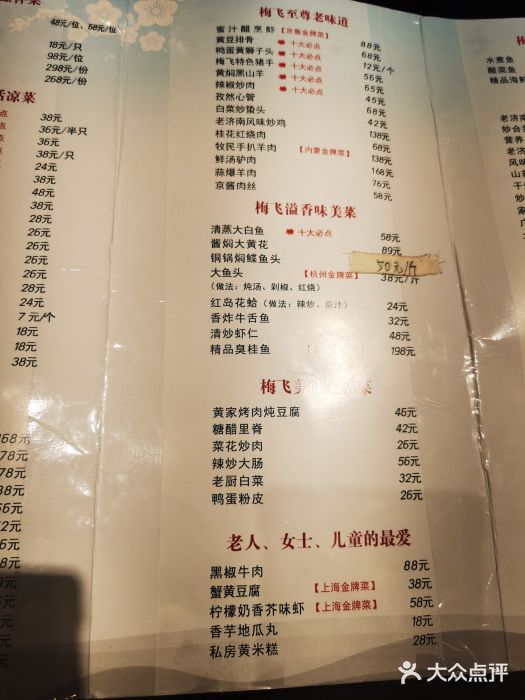 48元/位、58元/位
18元/只
98元/位
298元/份
268元/份
活凉菜
38元
36元/半只
36元
38元/只
24元
48元
38元
28元
26元
26元
26元
28元
24元
7元/个
18元
18元
38元
168元
梅飞至尊老味道
蜜汁醋烹虾【京鲁金牌菜】 88元
黄豆排骨 十大必点 68元
鸭蛋黄狮子头 十大必点 12元/个
梅飞特色猪手 十大必点 56元
黄焖黑山羊 十大必点 65元
辣椒炒肉 十大必点 45元
孜然心管 68元
白菜炒蛰头 42元
老济南风味炒鸡 138元
桂花红烧肉 68元
牧民手扒羊肉【内蒙金牌菜】 138元
鲜汤驴肉 168元
蒜爆羊肉 76元
京酱肉丝 58元
梅飞溢香味美菜
清蒸大白鱼 十大必点 58元
酱焖大黄花 89元
铜锅焖鲽鱼头 50元/斤
大鱼头【杭州金牌菜】 38元/斤
(做法:炖汤、剁椒、红烧)
红岛花蛤(做法:辣炒、原汁) 24元
香炸牛舌鱼 32元
清炒虾仁 48元
精品臭桂鱼 198元
梅飞美
菜
黄家烤肉炖豆腐 46元
糖醋里脊 42元
菜花炒肉 26元
辣炒大肠 56元
老厨白菜 32元
鸭蛋粉皮 26元
老人、女士、儿童的最爱
黑椒牛肉 88元
蟹黄豆腐【上海金牌菜】 38元
柠檬奶香芥味虾【上海金牌菜】 58元
香芋地瓜丸 18元
私房黄米糕 28元
水煮鱼
酸菜鱼
精品海鲜
老济南
炒合
营养
老济
风味
山
大众点评